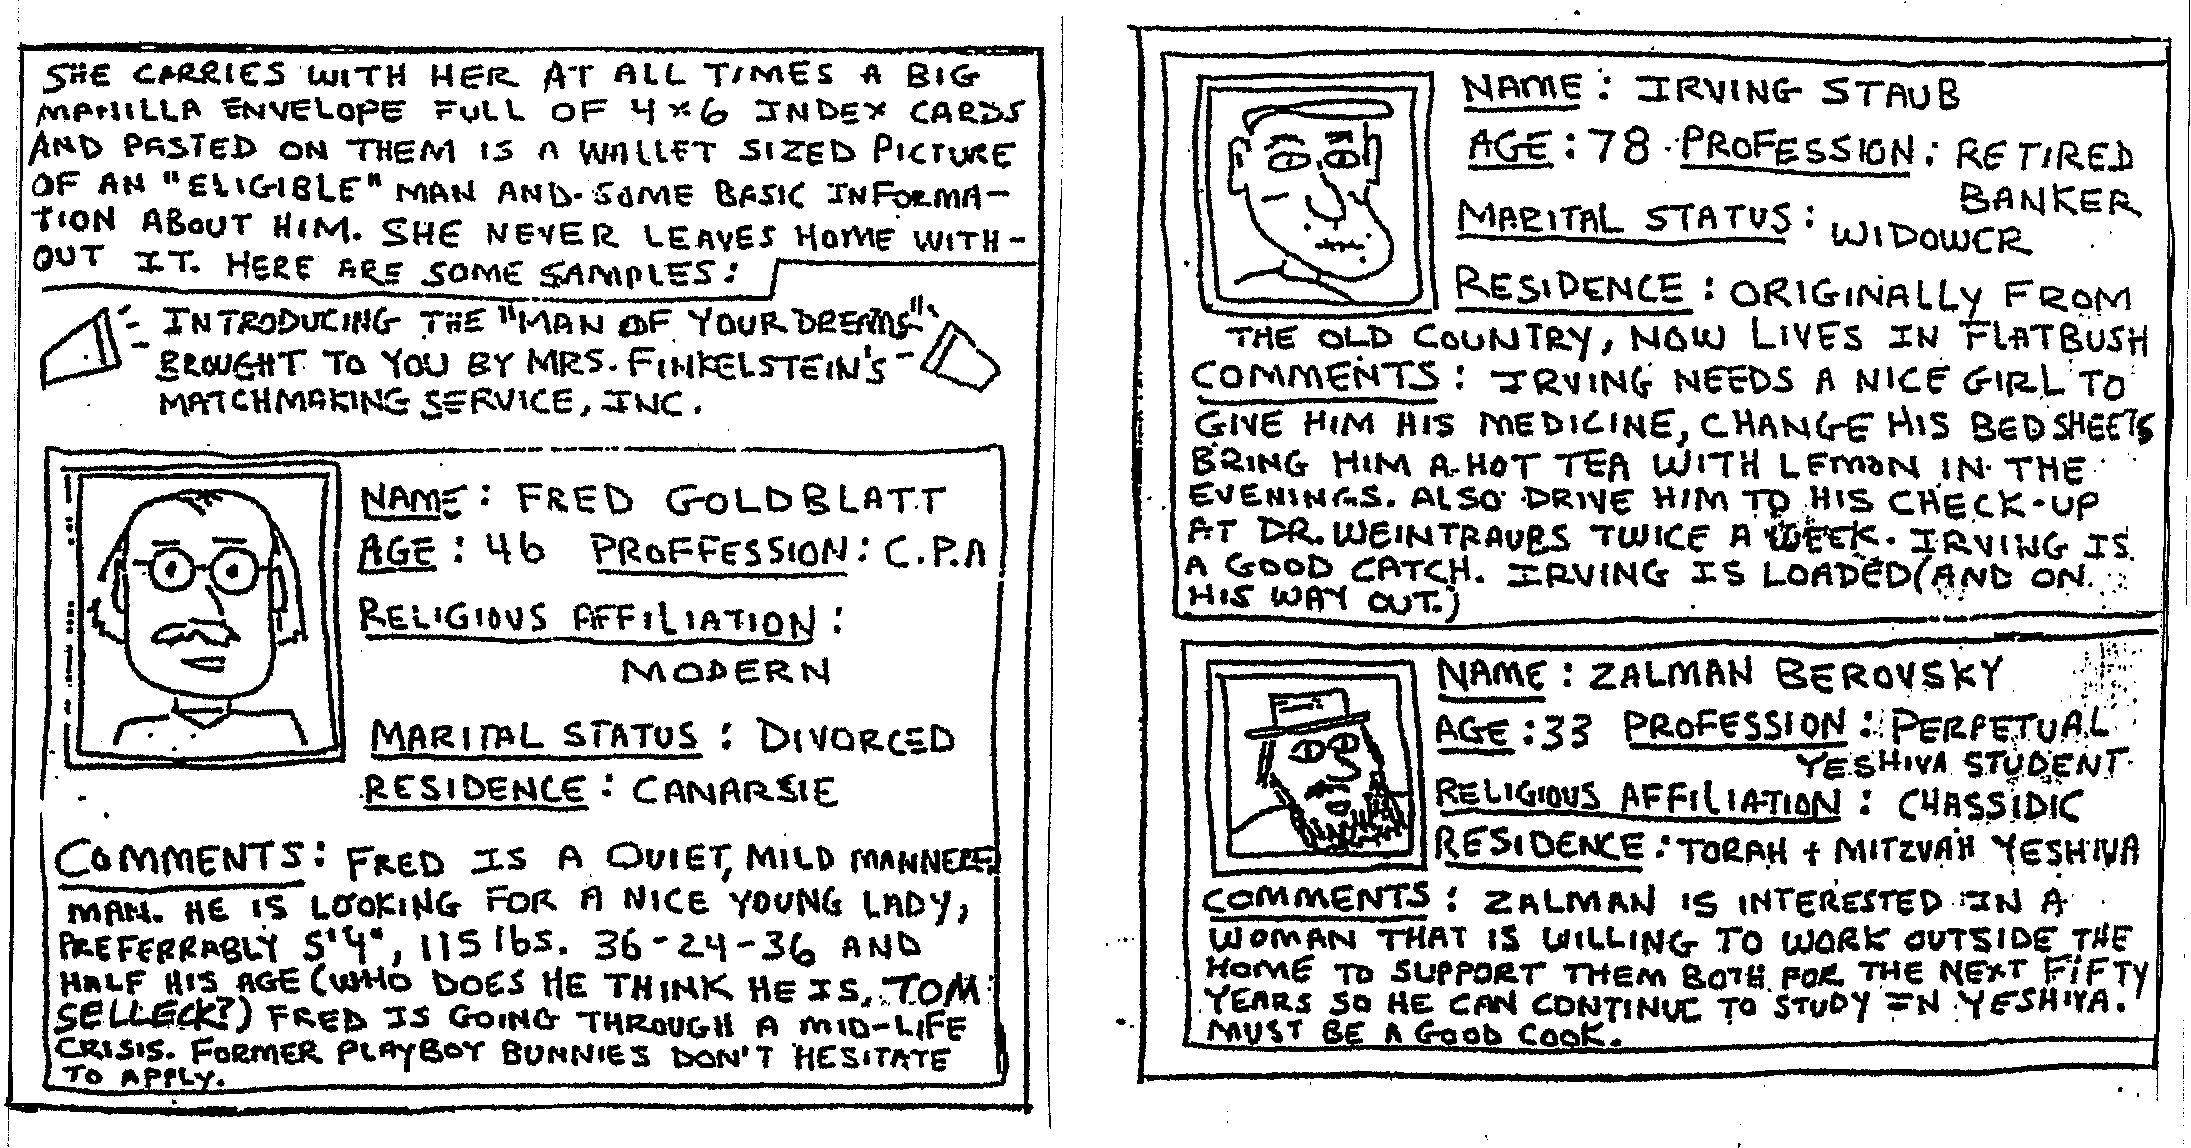 SHE CARRIES WITH HER AT ALL TIMES A BIG
MANILLA ENVELOPE FULL OF 4×6 INDEX CARDS
AND PASTED ON THEM IS A WALLET SIZED PICTURE
OF AN "ELIGIBLE" MAN AND SOME BASIC INFORMA-
TION ABOUT HIM. SHE NEVER LEAVES HOME WITH-
OUT IT. HERE ARE SOME SAMPLES:
INTRODUCING THE "MAN OF YOUR DREAMS"
BROUGHT TO YOU BY MRS. FINKELSTEIN'S
MATCHMAKING SERVICE, INC.
NAME: FRED GOLDBLATT
AGE: 46 PROFFESSION: C.P.A
RELIGIOUS AFFILIATION:
MODERN
MARITAL STATUS: DIVORCED
RESIDENCE: CANARSIE
COMMENTS: FRED IS A QUIET, MILD MANNERED
MAN. HE IS LOOKING FOR A NICE YOUNG LADY,
PREFERRABLY 5'4", 115 lbs. 36-24-36 AND
HALF HIS AGE (WHO DOES HE THINK HE IS, TOM
SELLECK?) FRED IS GOING THROUGH A MID-LIFE
CRISIS. FORMER PLAYBOY BUNNIES DON'T HESITATE
TO APPLY.
NAME: IRVING STAUB
AGE: 78 PROFESSION: RETIRED
BANKER
MARITAL STATUS: WIDOWER
RESIDENCE: ORIGINALLY FROM
THE OLD COUNTRY, NOW LIVES IN FLATBUSH
COMMENTS: IRVING NEEDS A NICE GIRL TO
GIVE HIM HIS MEDICINE, CHANGE HIS BEDSHEETS
BRING HIM A HOT TEA WITH LEMON IN THE
EVENINGS. ALSO DRIVE HIM TO HIS CHECK-UP
AT DR. WEINTRAUBS TWICE A WEEK. IRVING IS
A GOOD CATCH. IRVING IS LOADED (AND ON
HIS WAY OUT.)
NAME: ZALMAN BEROVSKY
AGE: 33 PROFESSION: PERPETUAL
YESHIVA STUDENT
RELIGIOUS AFFILIATION: CHASSIDIC
RESIDENCE: TORAH + MITZVAH YESHIVA
COMMENTS: ZALMAN IS INTERESTED IN A
WOMAN THAT IS WILLING TO WORK OUTSIDE THE
HOME TO SUPPORT THEM BOTH FOR THE NEXT FIFTY
YEARS SO HE CAN CONTINUE TO STUDY IN YESHIVA.
MUST BE A GOOD COOK.